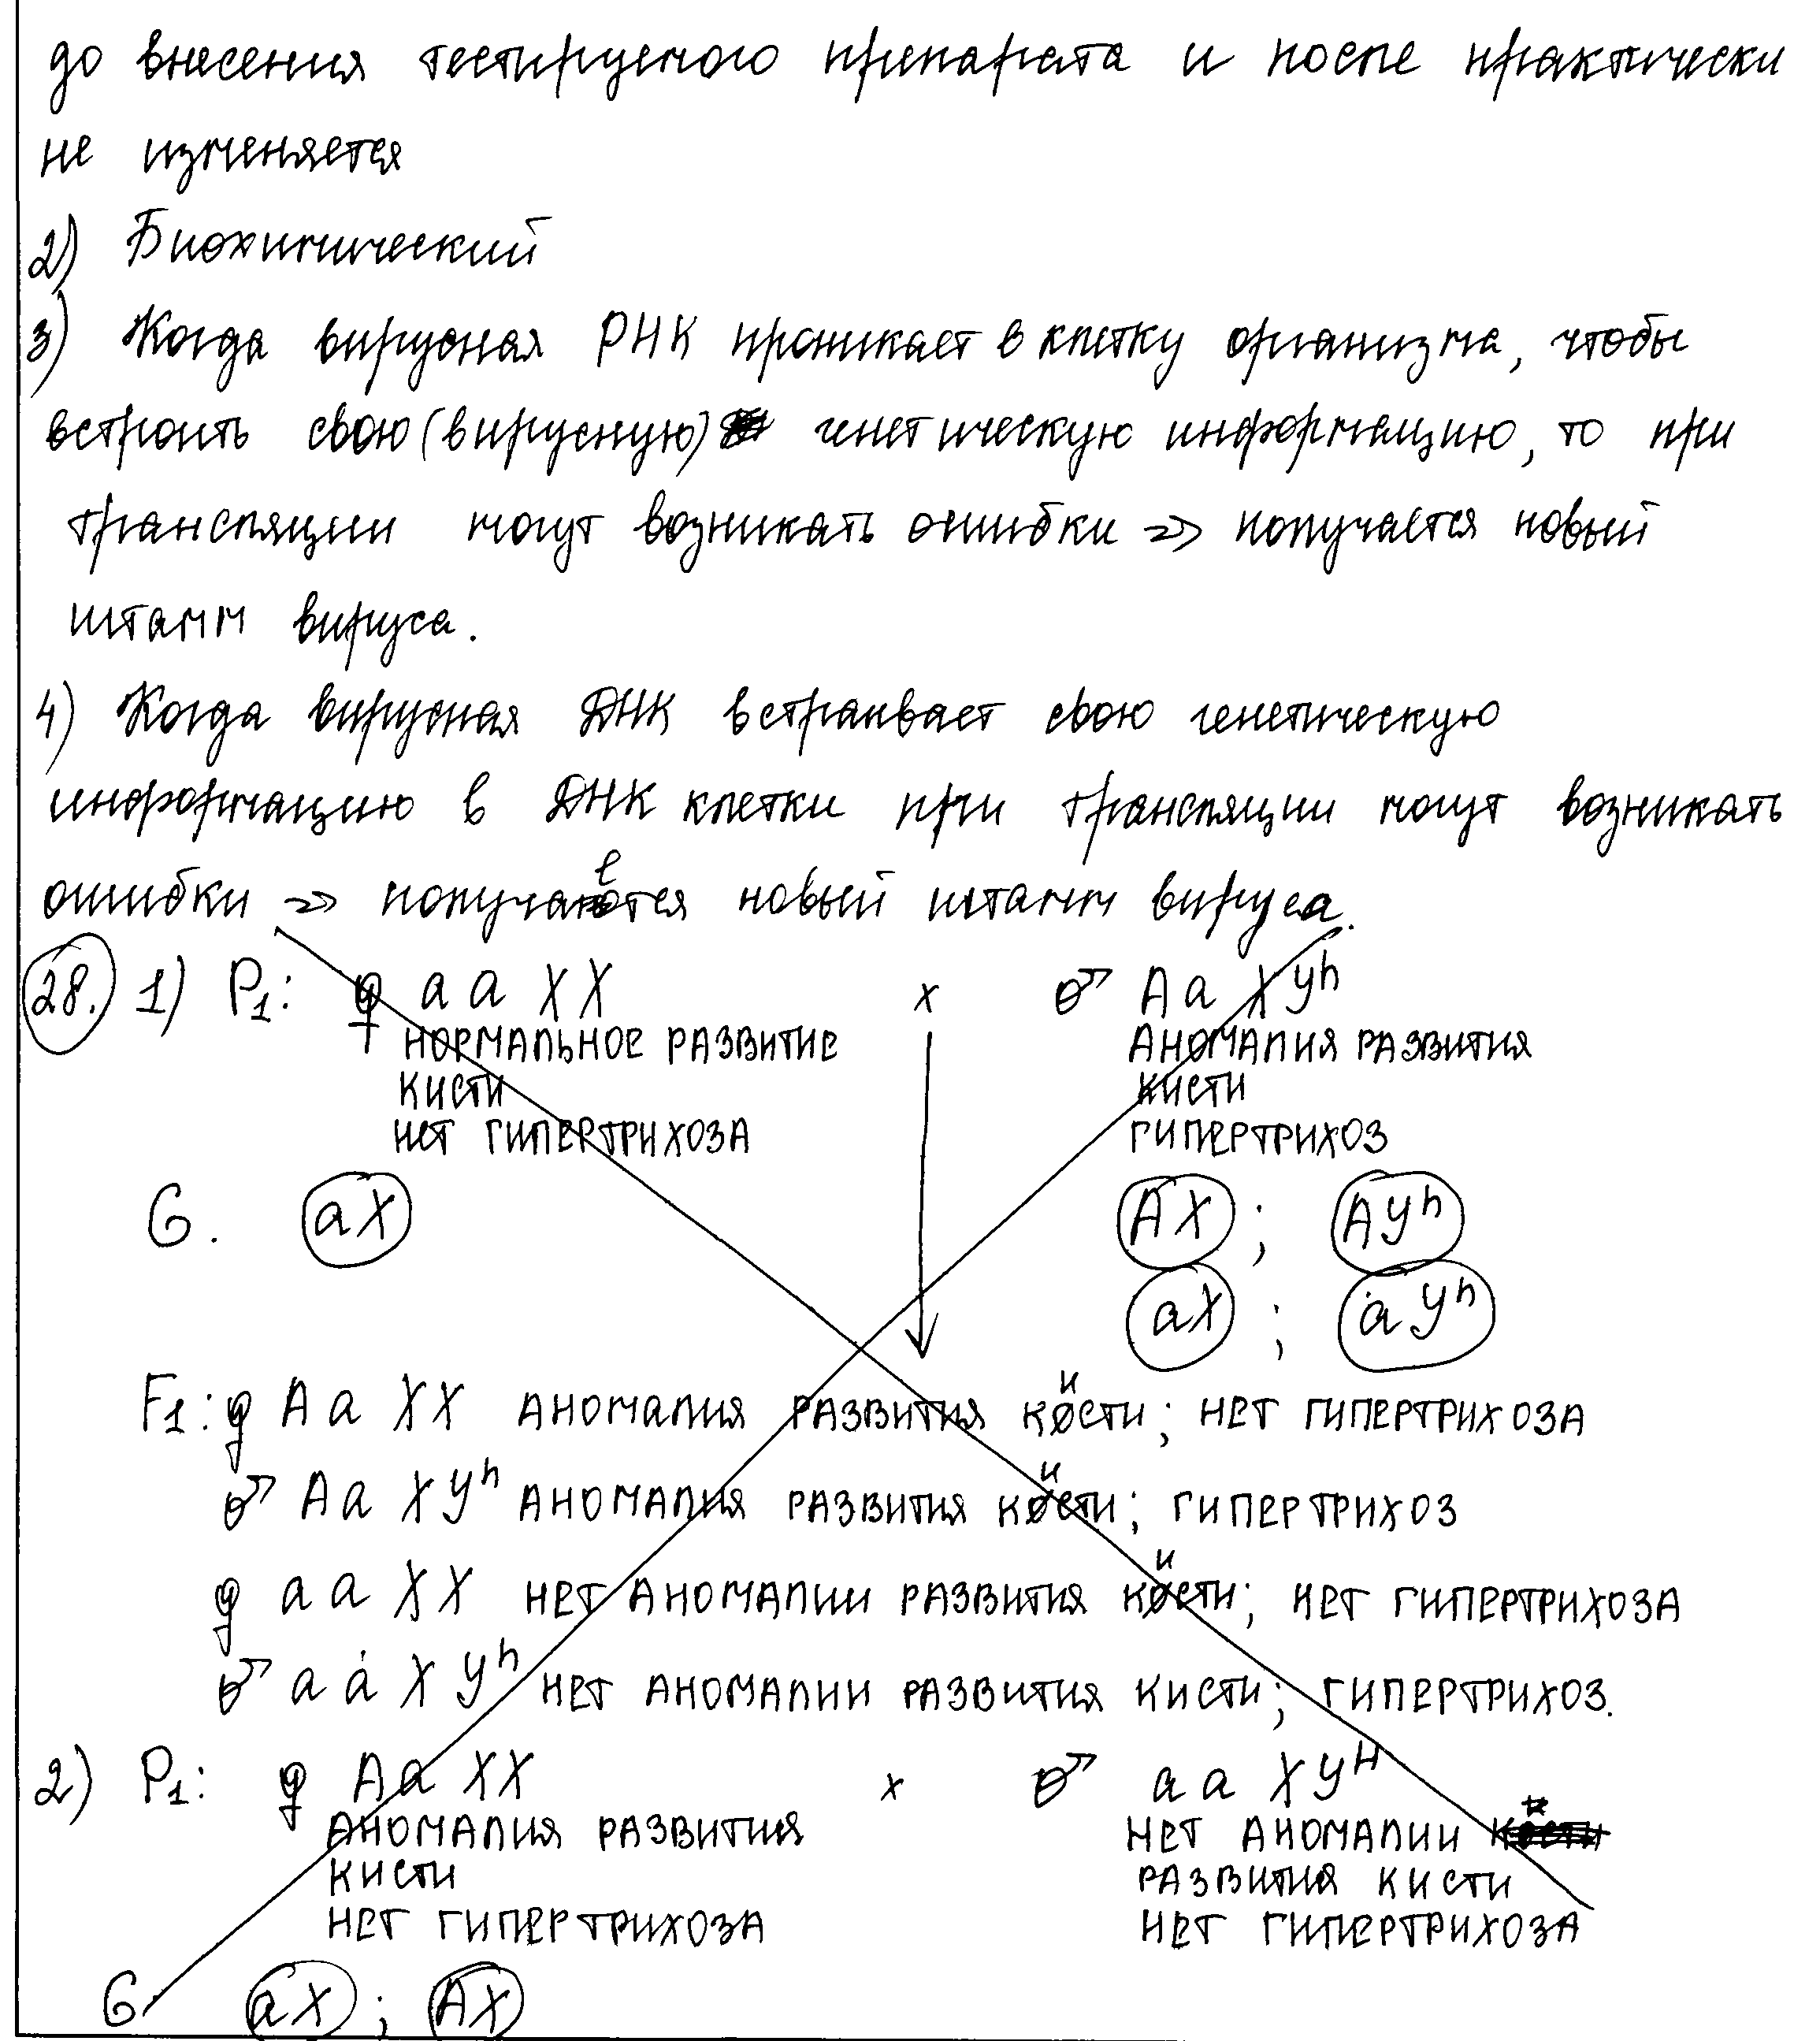 до внесения тестируемого препарата и после практически
не изменяется
2) Биохимический
3) Когда вирусная РНК проникает в клетку организма, чтобы
встроить свою (вирусную) генетическую информацию, то при
трансляции могут возникать ошибки => получается новый
штамм вируса.
4) Когда вирусная ДНК встраивает свою генетическую
информацию в ДНК клетки при трансляции могут возникать
ошибки => получается новый штамм вируса.
28. 1) P1: ♀ aa XX x ♂ Aa XYʰ
НОРМАЛЬНОЕ РАЗВИТИЕ АНОМАЛИЯ РАЗВИТИЯ
КИСТИ КИСТИ
НЕТ ГИПЕРТРИХОЗА ГИПЕРТРИХОЗ
G. aX AX ; AYʰ
aX ; aYʰ
F1: ♀ Aa XX АНОМАЛИЯ РАЗВИТИЯ КИСТИ; НЕТ ГИПЕРТРИХОЗА
♂ Aa XYʰ АНОМАЛИЯ РАЗВИТИЯ КИСТИ; ГИПЕРТРИХОЗ
♀ aa XX НЕТ АНОМАЛИИ РАЗВИТИЯ КИСТИ; НЕТ ГИПЕРТРИХОЗА
♂ aa XYʰ НЕТ АНОМАЛИИ РАЗВИТИЯ КИСТИ; ГИПЕРТРИХОЗ.
2) P1: ♀ Aa XX x ♂ aa XYᴴ
АНОМАЛИЯ РАЗВИТИЯ НЕТ АНОМАЛИИ
КИСТИ РАЗВИТИЯ КИСТИ
НЕТ ГИПЕРТРИХОЗА НЕТ ГИПЕРТРИХОЗА
G. aX ; AX